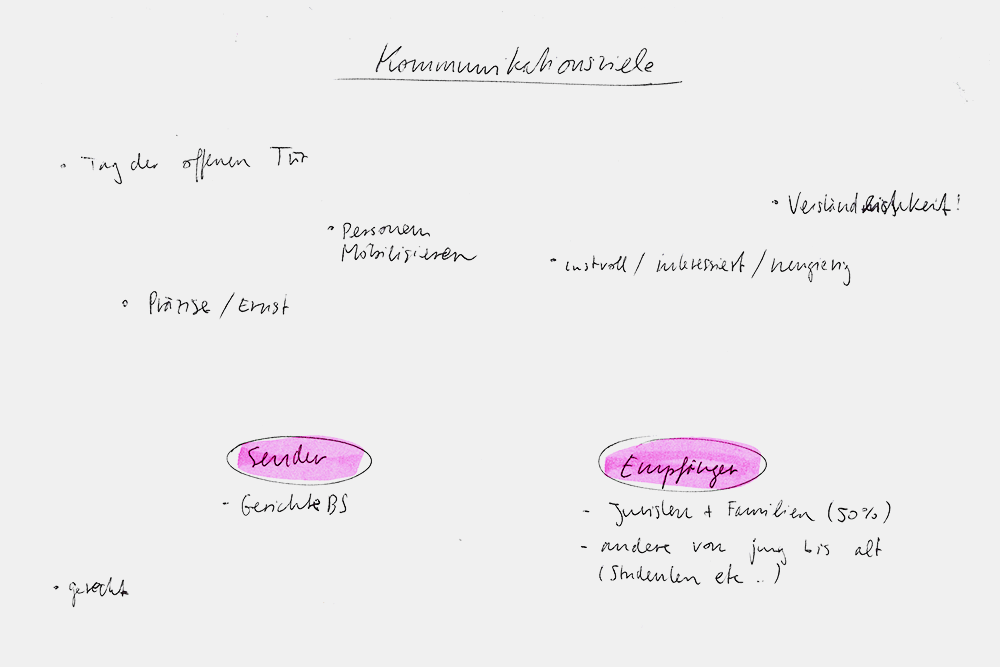 Kommunikationsziele
• Tag der offenen Tür
• Verständlichkeit!
• Personen
Mobilisieren
• lustvoll / interessiert / neugierig
• Präzise / Ernst
Sender
- Gerichte BS
Empfänger
- Juristen + Familien (50%)
- andere von jung bis alt
(Studenten etc ..)
• gerecht